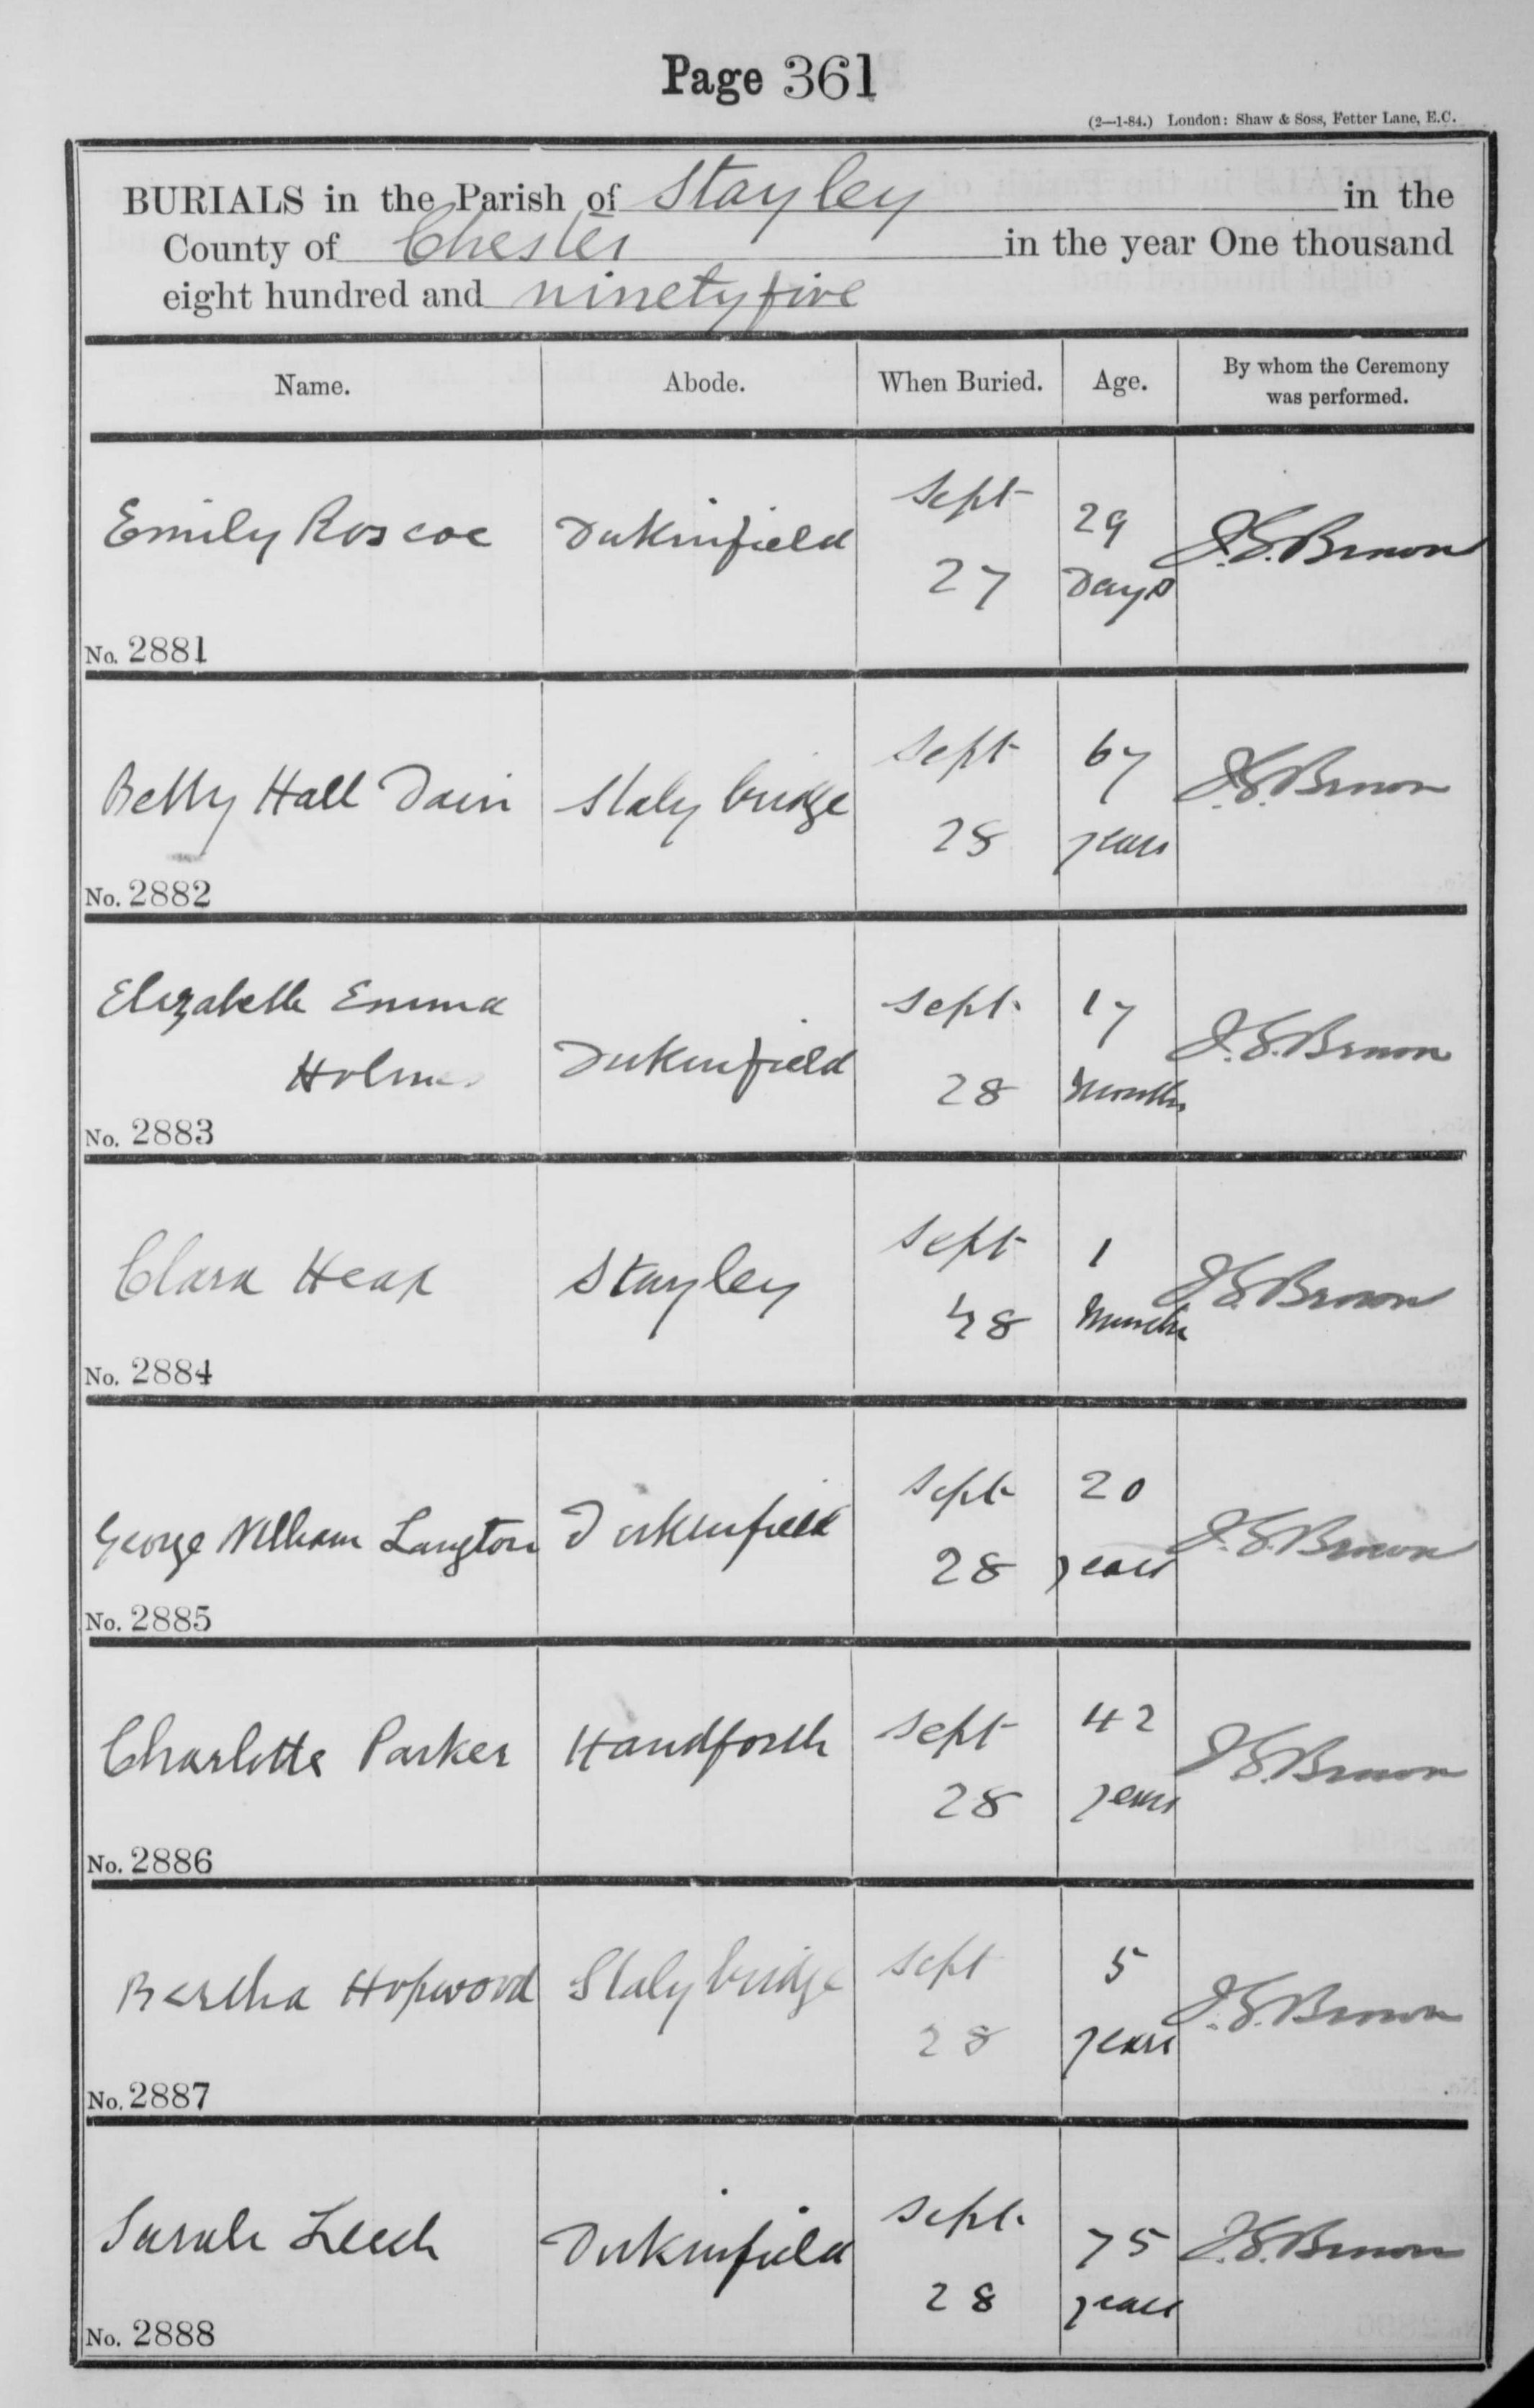 Page 361
(2—1-84.) London: Shaw & Soss, Fetter Lane, E.C.
BURIALS in the Parish of Stayley in the
County of Chester in the year One thousand
eight hundred and ninety five
Name. Abode. When Buried. Age. By whom the Ceremony was performed.
Emily Roscoe Dukinfield Sept 27 29 Days J.S. Brown
No. 2881
Betty Hall Dain Staly bridge Sept 28 67 years J.S. Brown
No. 2882
Elizabeth Emma
Holmes Dukinfield Sept. 28 17 Months J.S. Brown
No. 2883
Clara Heap Stayley Sept 28 1 Month J.S. Brown
No. 2884
George William Langton Dukinfield Sept 28 20 years J.S. Brown
No. 2885
Charlotte Parker Handforth Sept 28 42 years J.S. Brown
No. 2886
Bertha Hopwood Staly bridge Sept 28 5 years J.S. Brown
No. 2887
Sarah Leech Dukinfield Sept. 28 75 years J.S. Brown
No. 2888